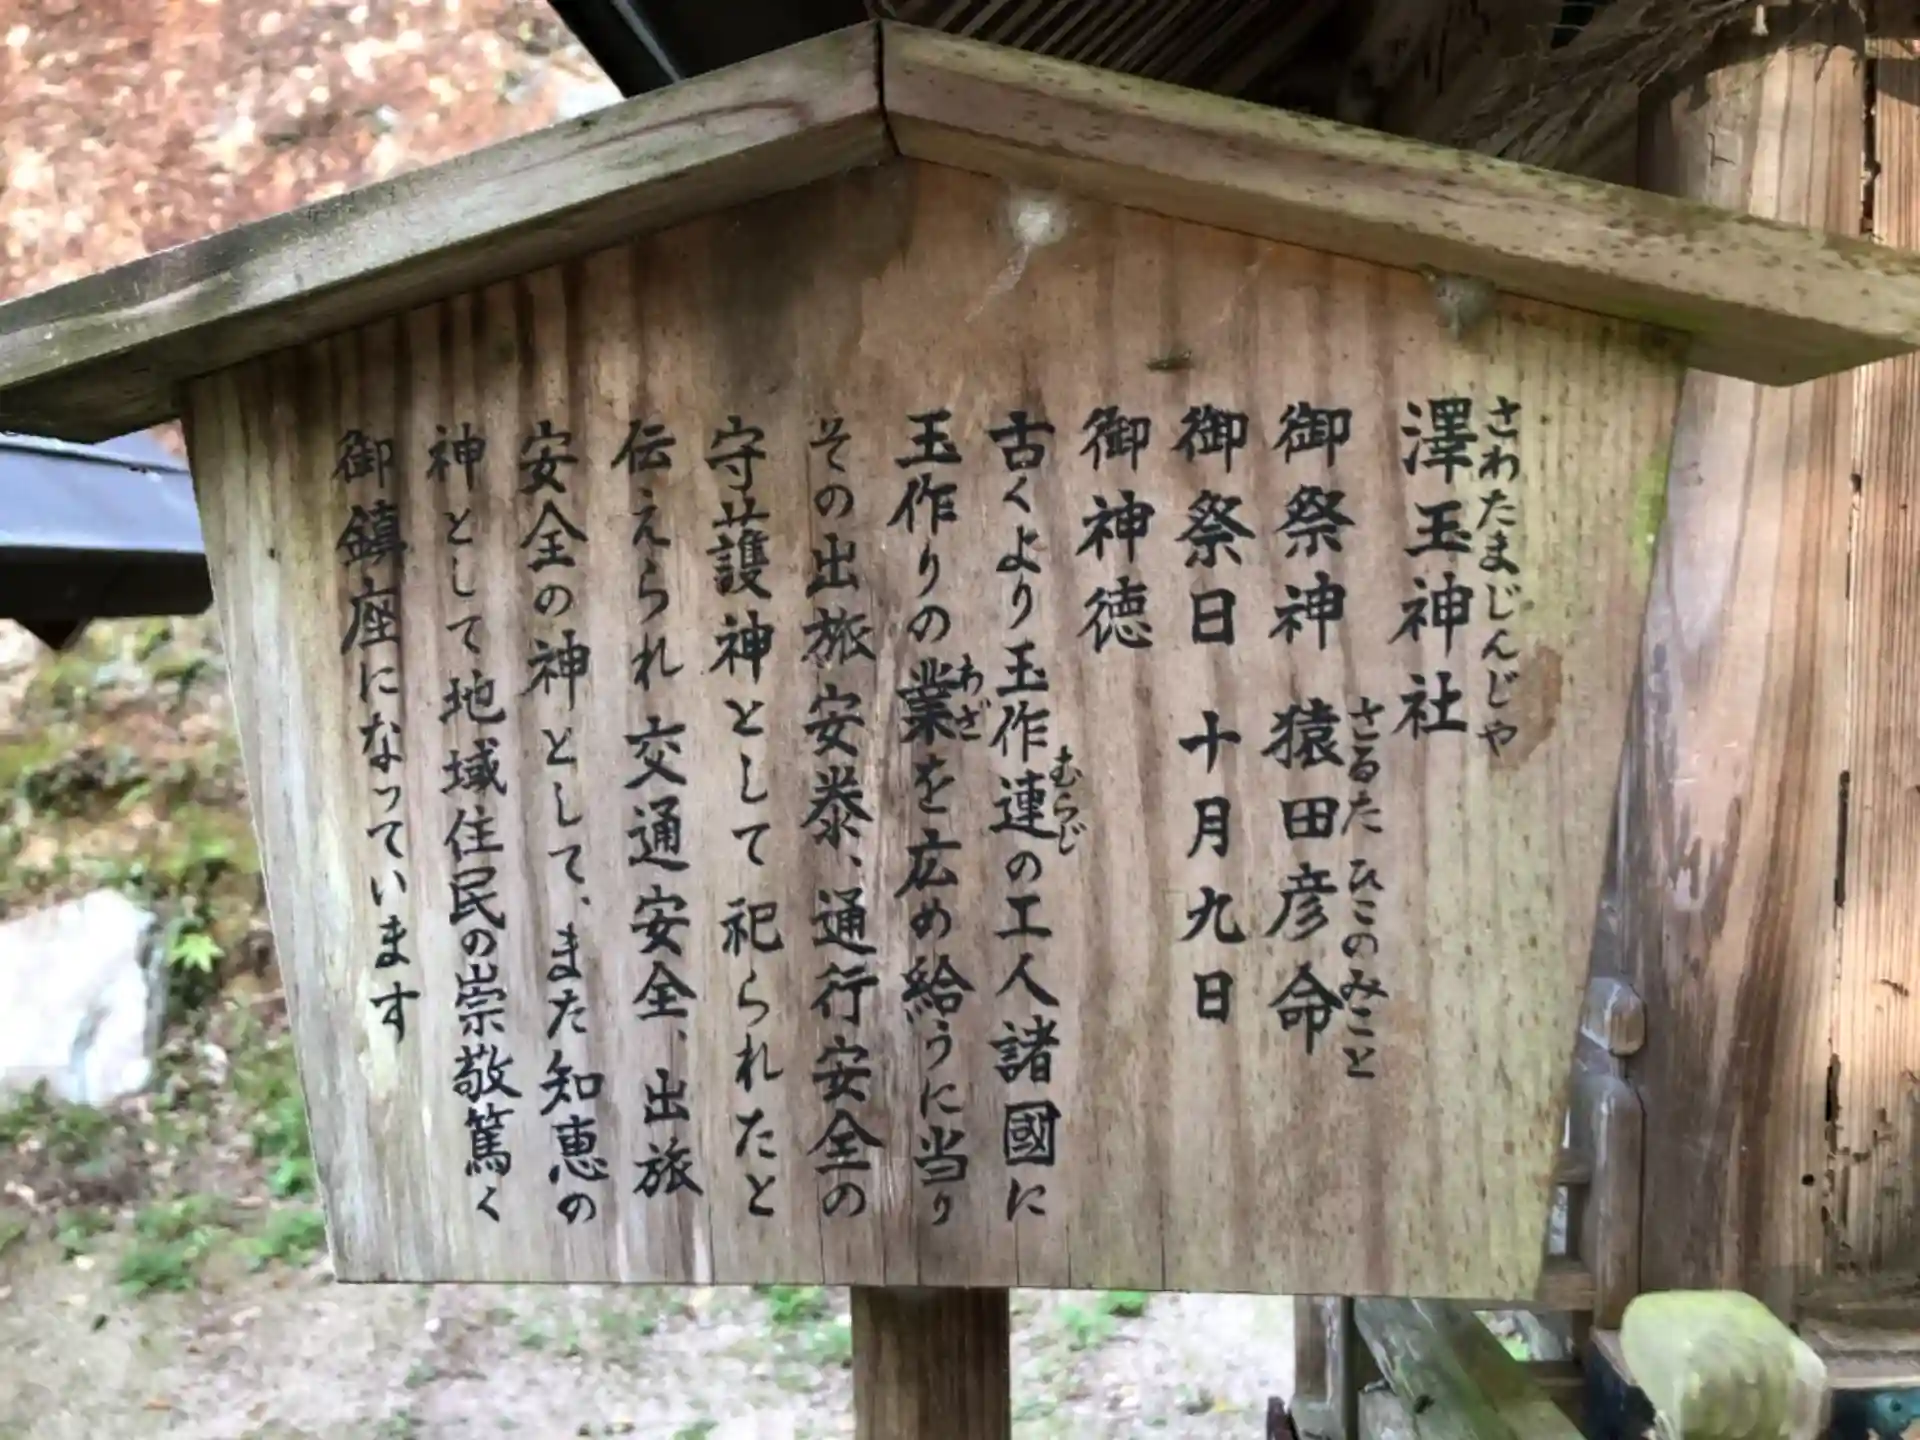 さわたまじんじゃ
澤玉神社
御祭神 猿田彦命
さるた ひこのみこと
御祭日 十月九日
御神徳
古くより玉作連の工人諸國に
むらじ
玉作りの業を広め給うに当り
わざ
その出旅安泰、通行安全の
守護神として祀られたと
伝えられ交通安全、出旅
安全の神として、また知恵の
神として地域住民の崇敬篤く
御鎮座になっています